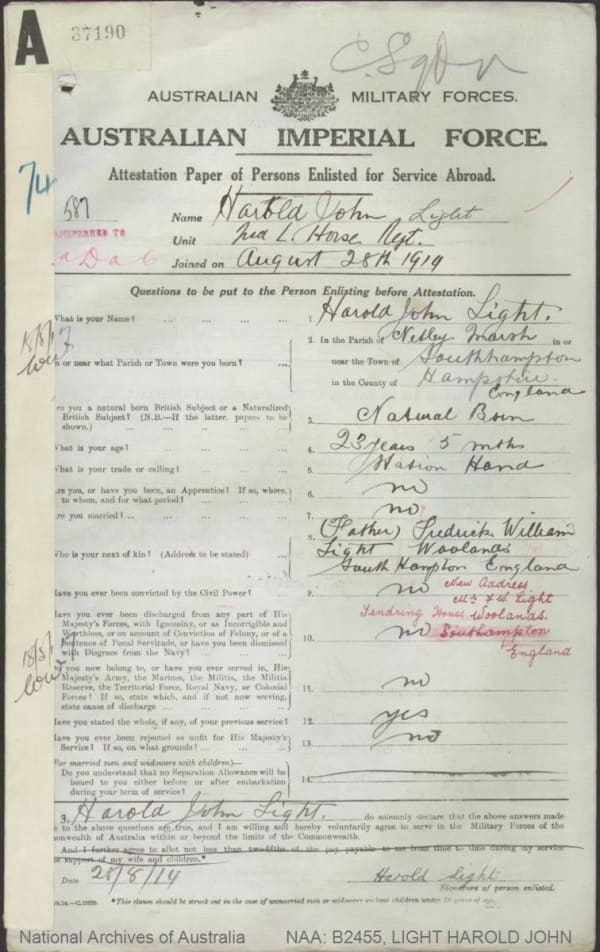 A
37190
AUSTRALIAN MILITARY FORCES.
AUSTRALIAN IMPERIAL FORCE.
Attestation Paper of Persons Enlisted for Service Abroad.
74
587
Name Harold John Light
Unit 2nd L. Horse Regt.
Joined on August 28th 1914
Questions to be put to the Person Enlisting before Attestation.
What is your Name? ... ... ... ... 1. Harold John Light.
2. In the Parish of Netley Marsh in or
n or near what Parish or Town were you born? ... near the Town of Southhampton
in the County of Hampshire. England
re you a natural born British Subject or a Naturalized
British Subject? (N.B.—If the latter, papers to be
shown.) ... ... ... ... 3. Natural Born
What is your age? ... ... ... 4. 23 years 5 mths
What is your trade or calling? ... ... 5. Station Hand
re you, or have you been, an Apprentice? If so, where,
to whom, and for what period? ... ... 6. no
re you married? ... ... ... ... 7. no
8. (Father) Fredrick William
Who is your next of kin? (Address to be stated) ... Light Woolands
South Hampton England
Have you ever been convicted by the Civil Power? 9. no
New Address
Light
Tendring House Woolands.
Southampton
England
Have you ever been discharged from any part of His
Majesty's Forces, with Ignominy, or as Incorrigible and
Worthless, or on account of Conviction of Felony, or of a
Sentence of Penal Servitude, or have you been dismissed
with Disgrace from the Navy? ... ... 10. no
you now belong to, or have you ever served in, His
Majesty's Army, the Marines, the Militia, the Militia
Reserve, the Territorial Force, Royal Navy, or Colonial
Forces? If so, state which, and if not now serving,
state cause of discharge ... ... ... 11. no
Have you stated the whole, if any, of your previous service? 12. yes
Have you ever been rejected as unfit for His Majesty's
Service? If so, on what grounds? ... ... 13. no
(For married men and widowers with children)—
Do you understand that no Separation Allowance will be
issued to you either before or after embarkation
during your term of service? 14.
3. Harold John Light. do solemnly declare that the above answers made
to the above questions are true, and I am willing and hereby voluntarily agree to serve in the Military Forces of the
onwealth of Australia within or beyond the limits of the Commonwealth.
And I further agree to allot not less than two-fifths of the pay payable to me from time to time during my service
support of my wife and children.*
Date 28/8/14 Harold Light
Signature of person enlisted.
*This clause should be struck out in the case of unmarried men or widowers without children under 18 years of age.
National Archives of Australia NAA: B2455, LIGHT HAROLD JOHN